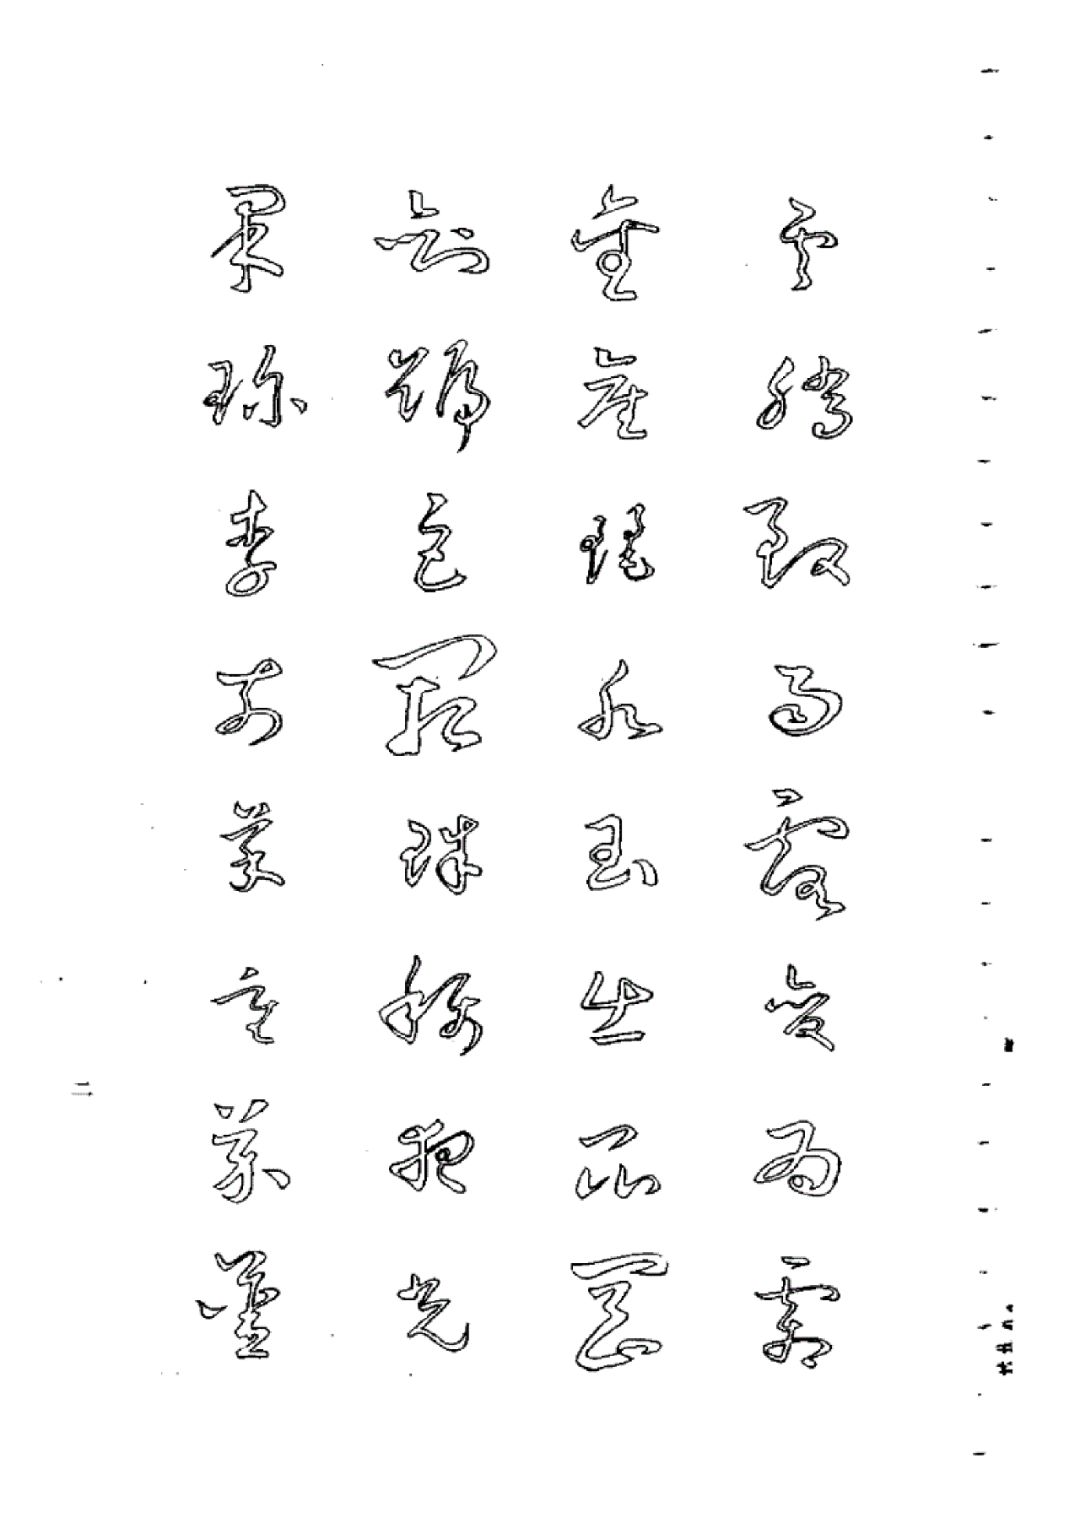 云騰致雨露結為霜
金生麗水玉出崑岡
劍號巨闕珠稱夜光
果珍李柰菜重芥薑
二